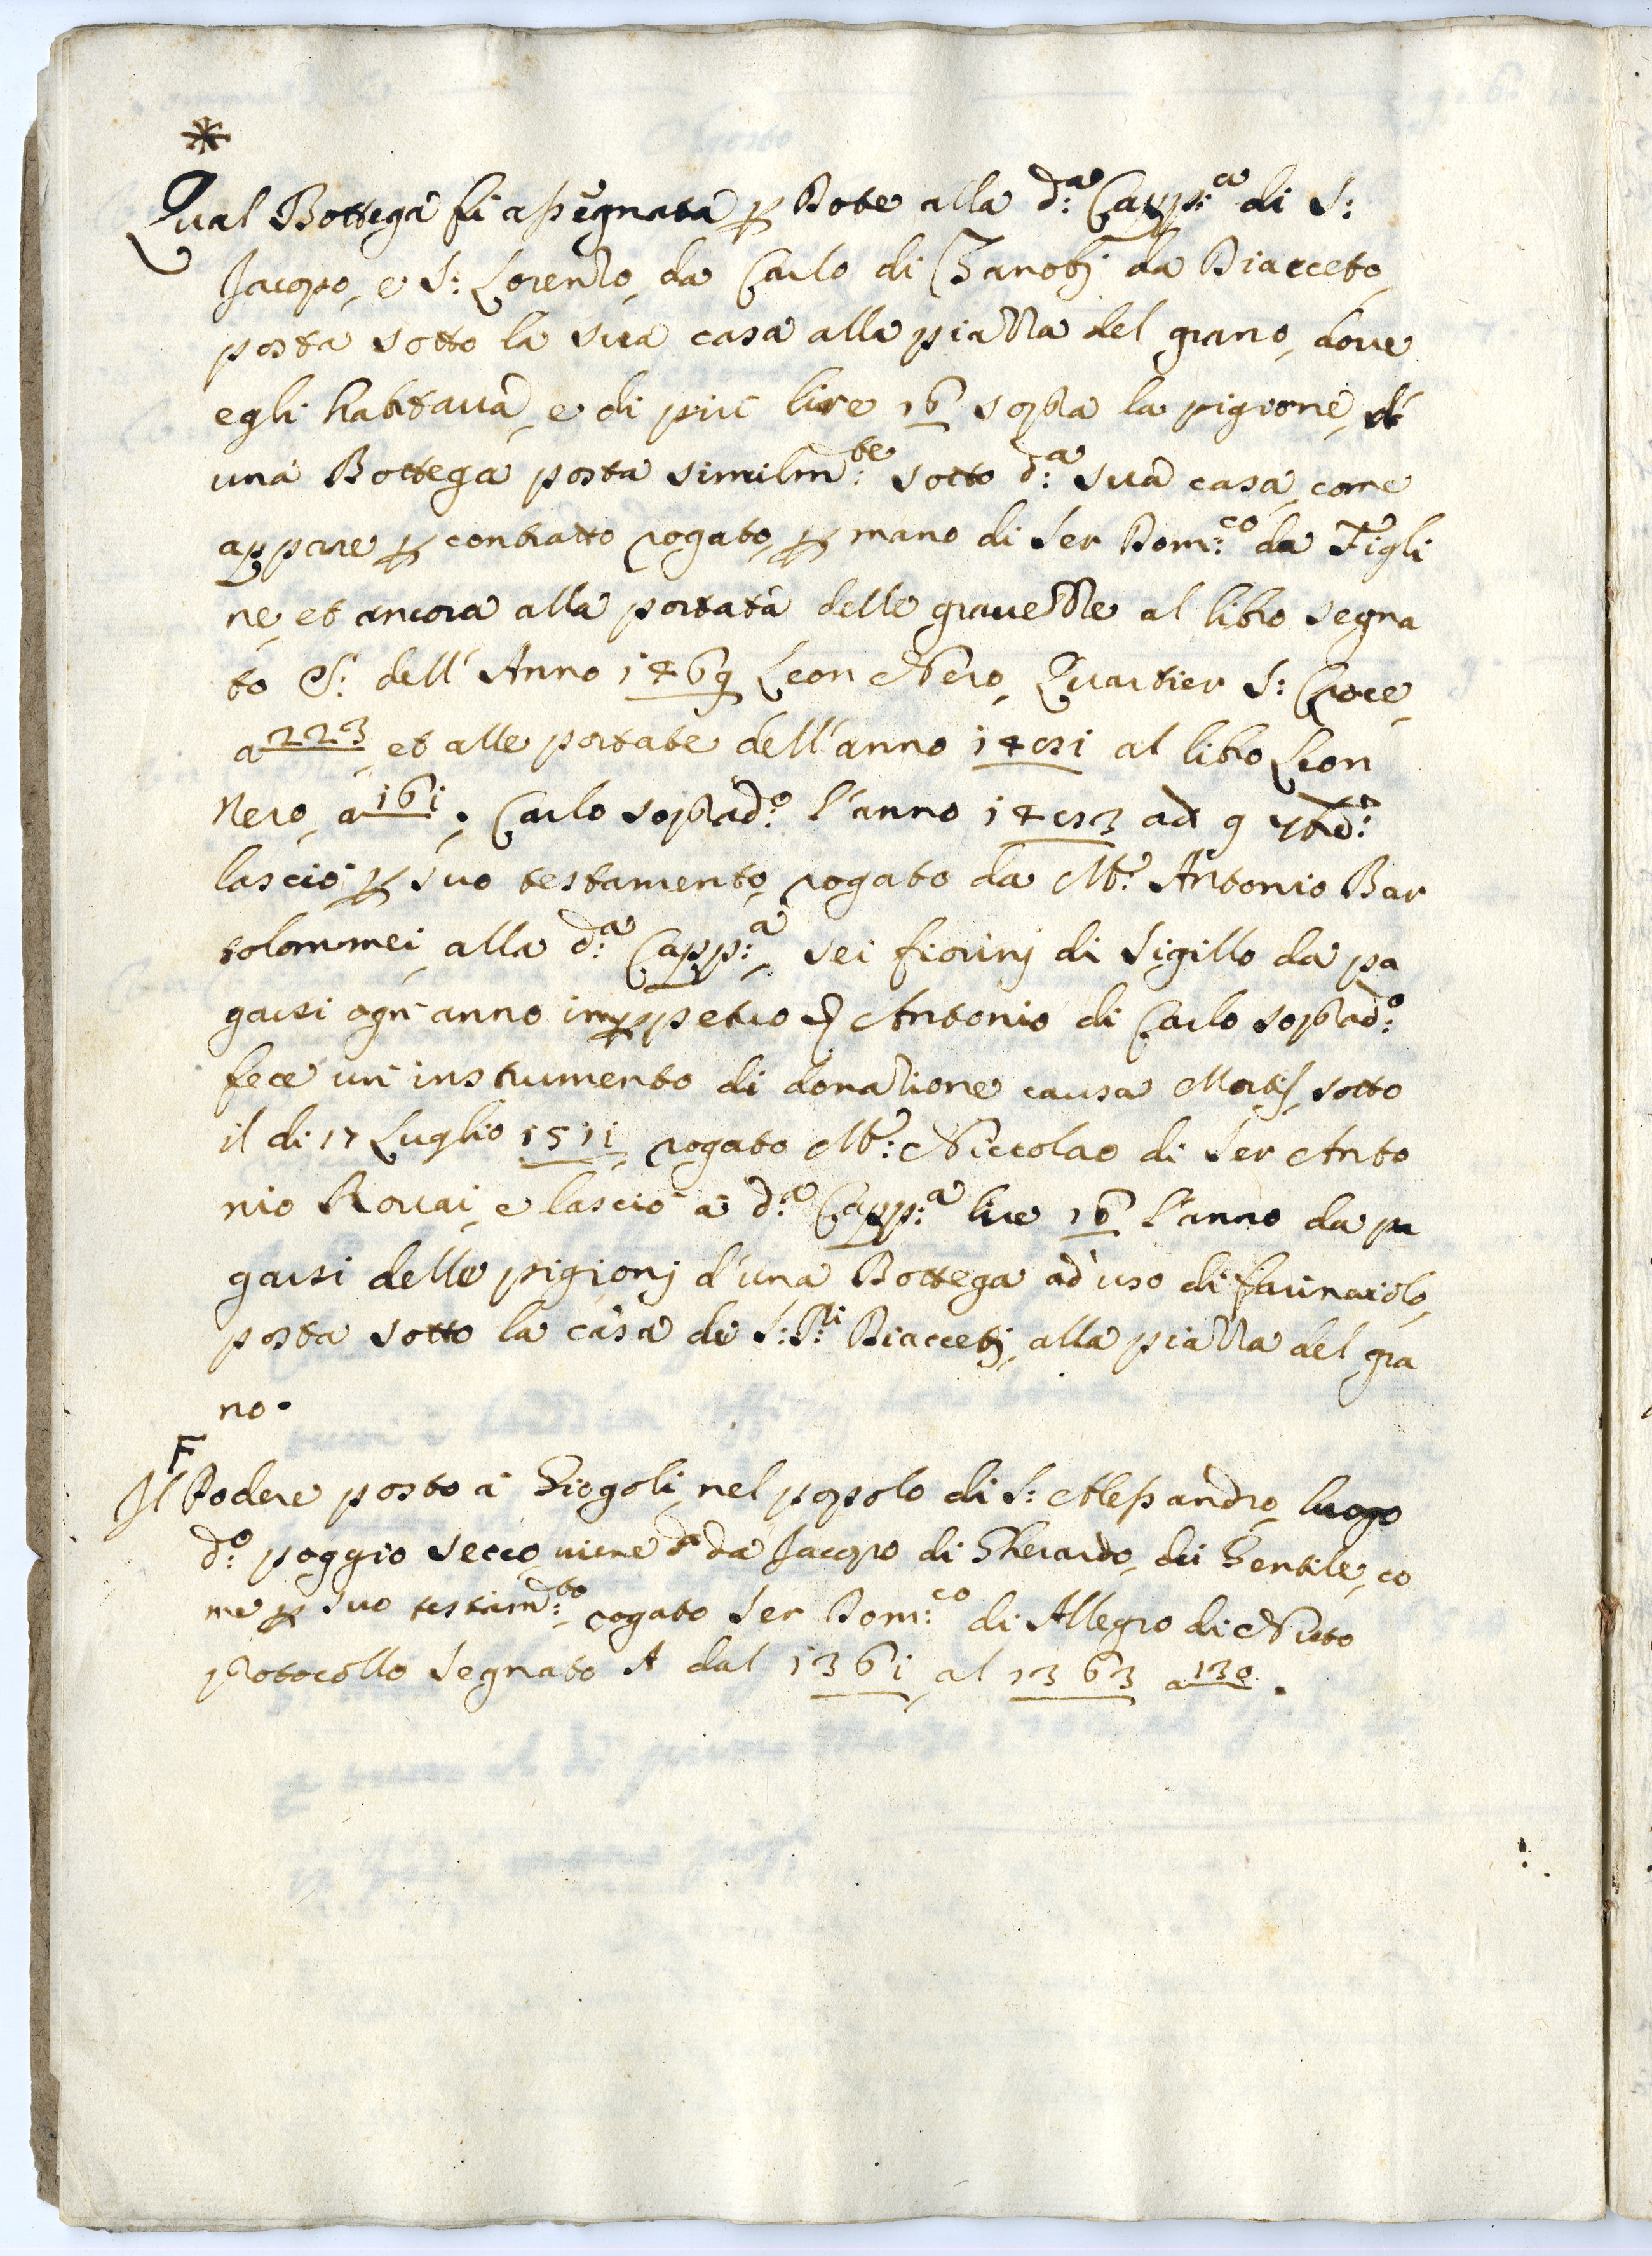 *
Qual Bottega fù assegnata p Dote alla d:ª Capp:ª di S:
Jacopo, e S: Lorenzo, da Carlo di Zanobj da Diacceto,
posta sotto la sua casa alla piazza del grano, doue
egli habitaua, e di più lire 16 sopra la pigione, di
una Bottega posta similm:te sotto d:ª sua casa, come
appare p contratto rogato, p mano di Ser Dom:co da Figli
ne, et ancora alla portata delle grauezze al libro segna
to S: dell' Anno 1469 Leon Nero, Quartier S: Croce,
a 223, et alle portate dell'anno 1451 al libro Leon
Nero, a 161. Carlo soprad:º l'anno 1453 ad 9
lasciò p suo testamento, rogato da Mr: Antonio Bar
tolommei, alla d:ª Capp:ª, sei fiorinj di Sigillo da pa
garsi ogn' anno imppetuo Antonio di Carlo soprad:º
fece un' instrumento di donazione causa Mortis, sotto
il di 17 Luglio 1511, rogato Mr: Niccolao di Ser Anto
nio Rouai, e lasciò à d:ª Capp:ª lire 16 l'anno da pa
garsi delle pigionj d'una Bottega ad uso di farinaiolo,
posta sotto la casa de S:S:ri Diaccetj, alla piazza del gra
no.
F
Il Podere posto à Giogoli, nel popolo di S: Alessandro, luogo
d:º poggio secco, viene da Jacopo di Gherardo, di Gentile, co
me p suo testam:to, rogato Ser Dom:co di Allegro di Nuto
protocollo segnato A dal 1361, al 1363 a 130.